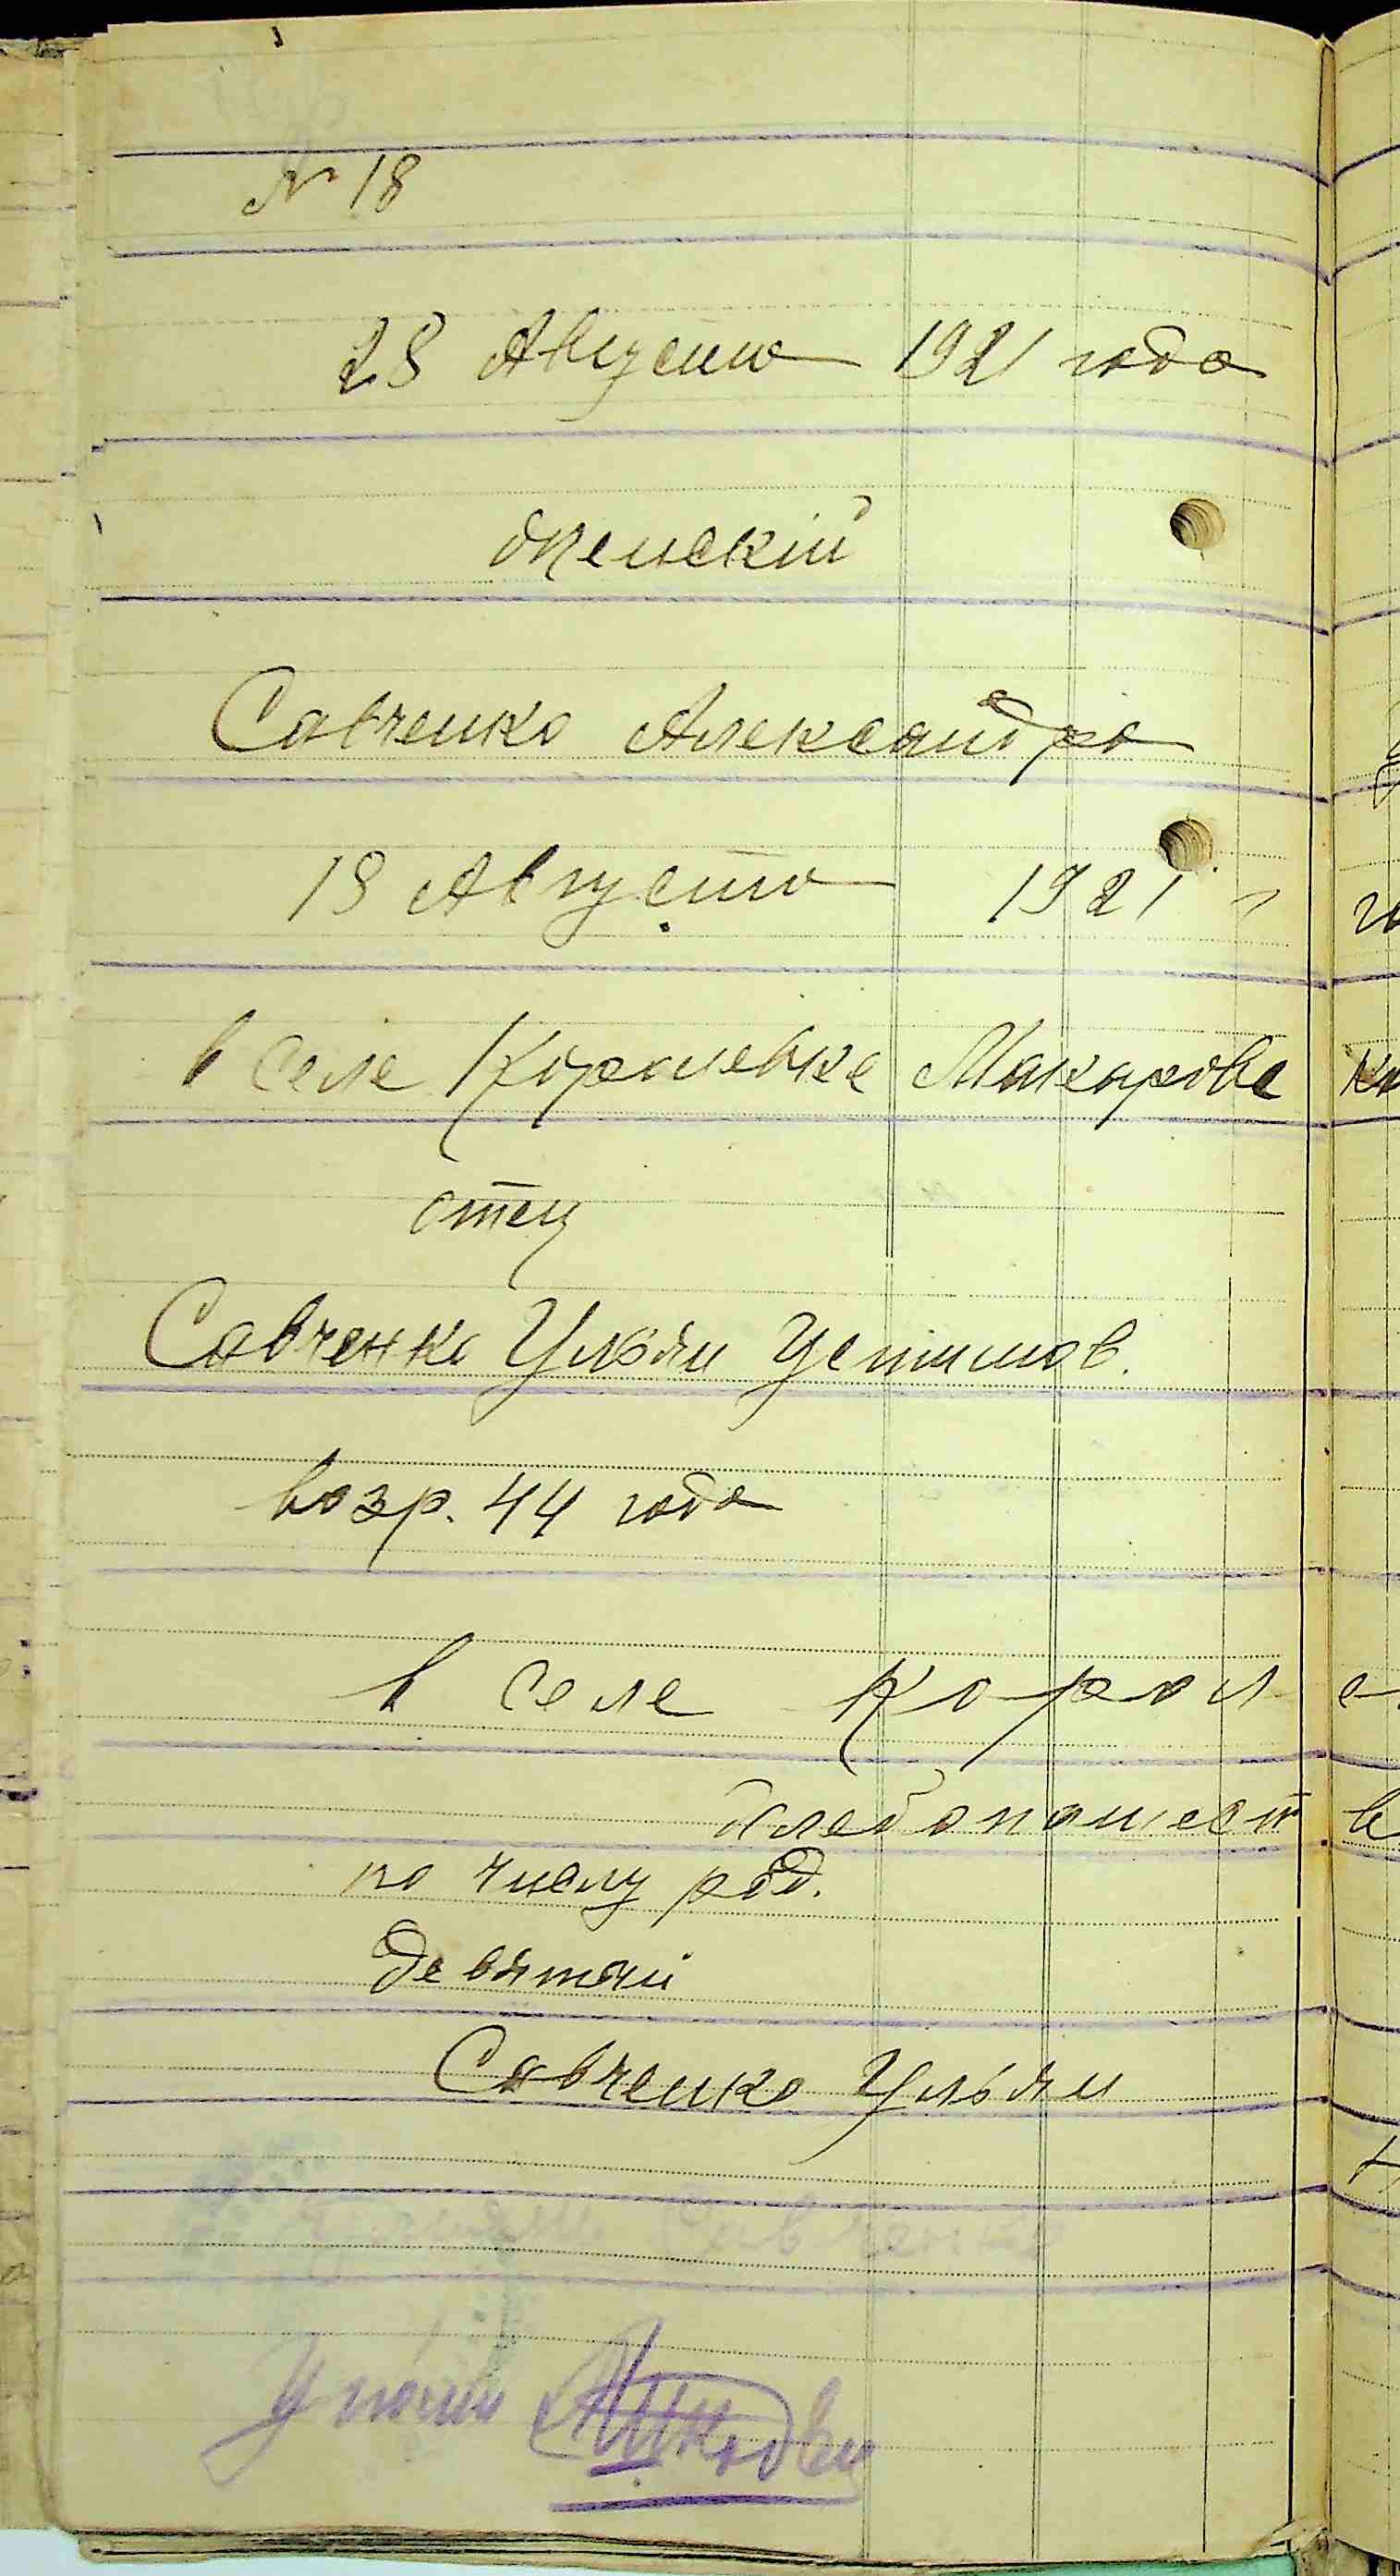 № 18
28 Августа 1921 года
женский
Савченко Александра
18 Августа 1921 г
в селе Королевке Макарове
отец
Савченко Ульян Устимов.
возр. 44 года
в селе Корол е
хлебопашест в
по числу род.
девятый
Савченко Ульян